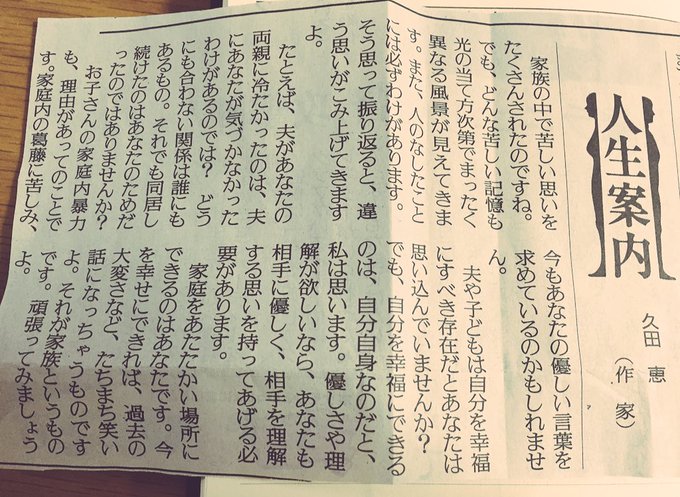 人生案内
久田 恵
(作家)
家族の中で苦しい思いを
たくさんされたのですね。
でも、どんな苦しい記憶も
光の当て方次第でまったく
異なる風景が見えてきま
す。また、人のなしたこと
には必ずわけがあります。
そう思って振り返ると、違
う思いがこみ上げてきます
よ。
たとえば、夫があなたの
両親に冷たかったのは、夫
にあなたが気づかなかった
わけがあるのでは? どう
にも合わない関係は誰にも
あるもの。それでも同居し
続けたのはあなたのためだ
ったのではありませんか?
お子さんの家庭内暴力
も、理由があってのことで
す。家庭内の葛藤に苦しみ、
今もあなたの優しい言葉を
求めているのかもしれませ
ん。
夫や子どもは自分を幸福
にすべき存在だとあなたは
思い込んでいませんか?
でも、自分を幸福にできる
のは、自分自身なのだと、
私は思います。優しさや理
解が欲しいなら、あなたも
相手に優しく、相手を理解
する思いを持ってあげる必
要があります。
家庭をあたたかい場所に
できるのはあなたです。今
を幸せにできれば、過去の
大変さなど、たちまち笑い
話になっちゃうものです
よ。それが家族というもの
です。頑張ってみましょう
よ。